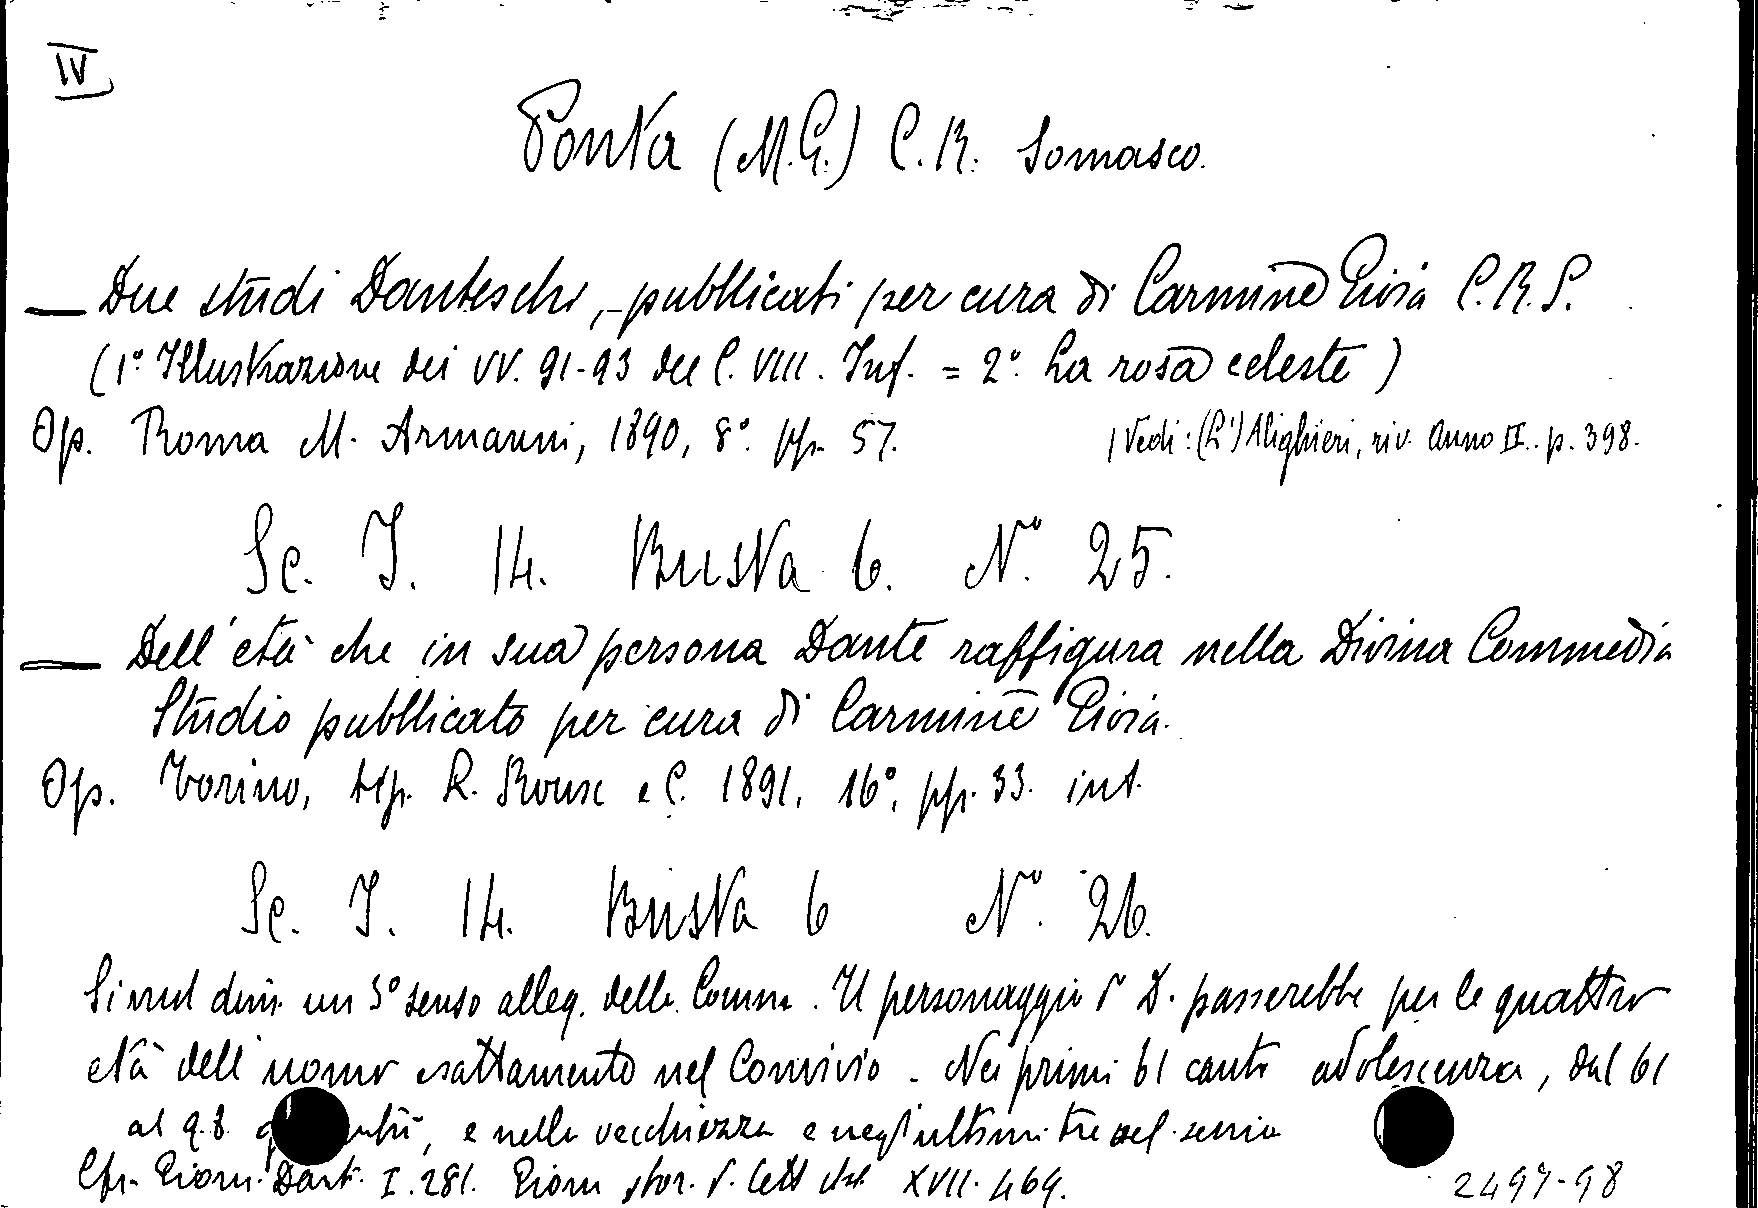 IV
Ponta (M.G.) C. R. Somasco.
— Due studi Danteschi, pubblicati per cura di Carmine Gioia C. R. S.
(1° Illustrazione dei VV. 91-93 del C. VIII. Inf. = 2° La rosa celeste)
Op. Roma M. Armanni, 1890, 8° pp. 57. | Vedi: (L') Alighieri, riv. Anno II. p. 398.
Sc. I. 14. Busta 6. N° 25.
— Dell'età che in sua persona Dante raffigura nella Divina Commedia
Studio pubblicato per cura di Carmine Gioia.
Op. Torino, tip. L. Roux e C. 1891, 16°, pp. 33. int.
Sc. I. 14. Busta 6 N° 26.
un senso alleg. della Comm. Il personaggio d D. passerebbe per le quattro
età dell'uomo esattamente nel Convivio. Nei primi 61 canti adolescenza, dal 61
al 98, e nella vecchiezza e negl'ultimi tre nel senio
Cfr. Giorn. Dant. I. 281. Giorn stor. d. lett ital XVII. 464.
2497-98